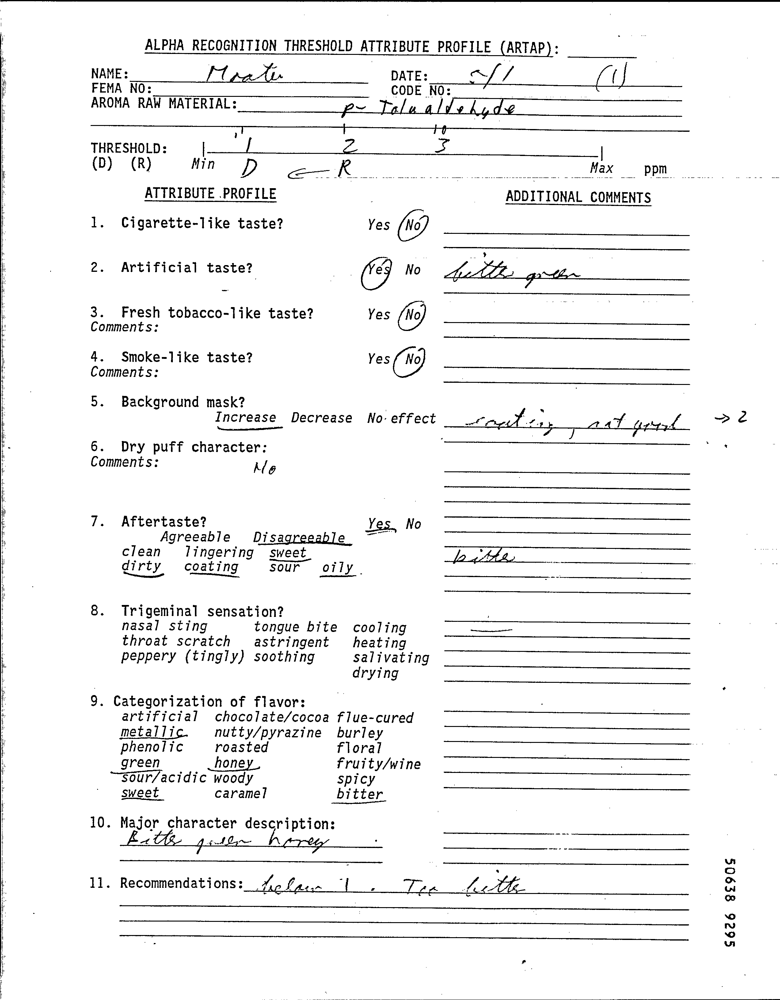 ALPHA RECOGNITION THRESHOLD ATTRIBUTE PROFILE (ARTAP):
NAME: DATE: /1 (1)
FEMA NO: CODE NO:
AROMA RAW MATERIAL: p- Tolualdehyde
1 10
THRESHOLD: 1 2 3
(D) (R) Min D ← R Max ppm
ATTRIBUTE PROFILE ADDITIONAL COMMENTS
1. Cigarette-like taste? Yes No
2. Artificial taste? Yes No bitter green
3. Fresh tobacco-like taste? Yes No
Comments:
4. Smoke-like taste? Yes No
Comments:
5. Background mask?
Increase Decrease No effect coating, not good → 2
6. Dry puff character:
Comments: No
7. Aftertaste? Yes No
Agreeable Disagreeable
clean lingering sweet bitter
dirty coating sour oily
8. Trigeminal sensation?
nasal sting tongue bite cooling —
throat scratch astringent heating
peppery (tingly) soothing salivating
drying
9. Categorization of flavor:
artificial chocolate/cocoa flue-cured
metallic nutty/pyrazine burley
phenolic roasted floral
green honey fruity/wine
sour/acidic woody spicy
sweet caramel bitter
10. Major character description:
Bitter green honey
11. Recommendations: below 1. Too bitter
50638 9295